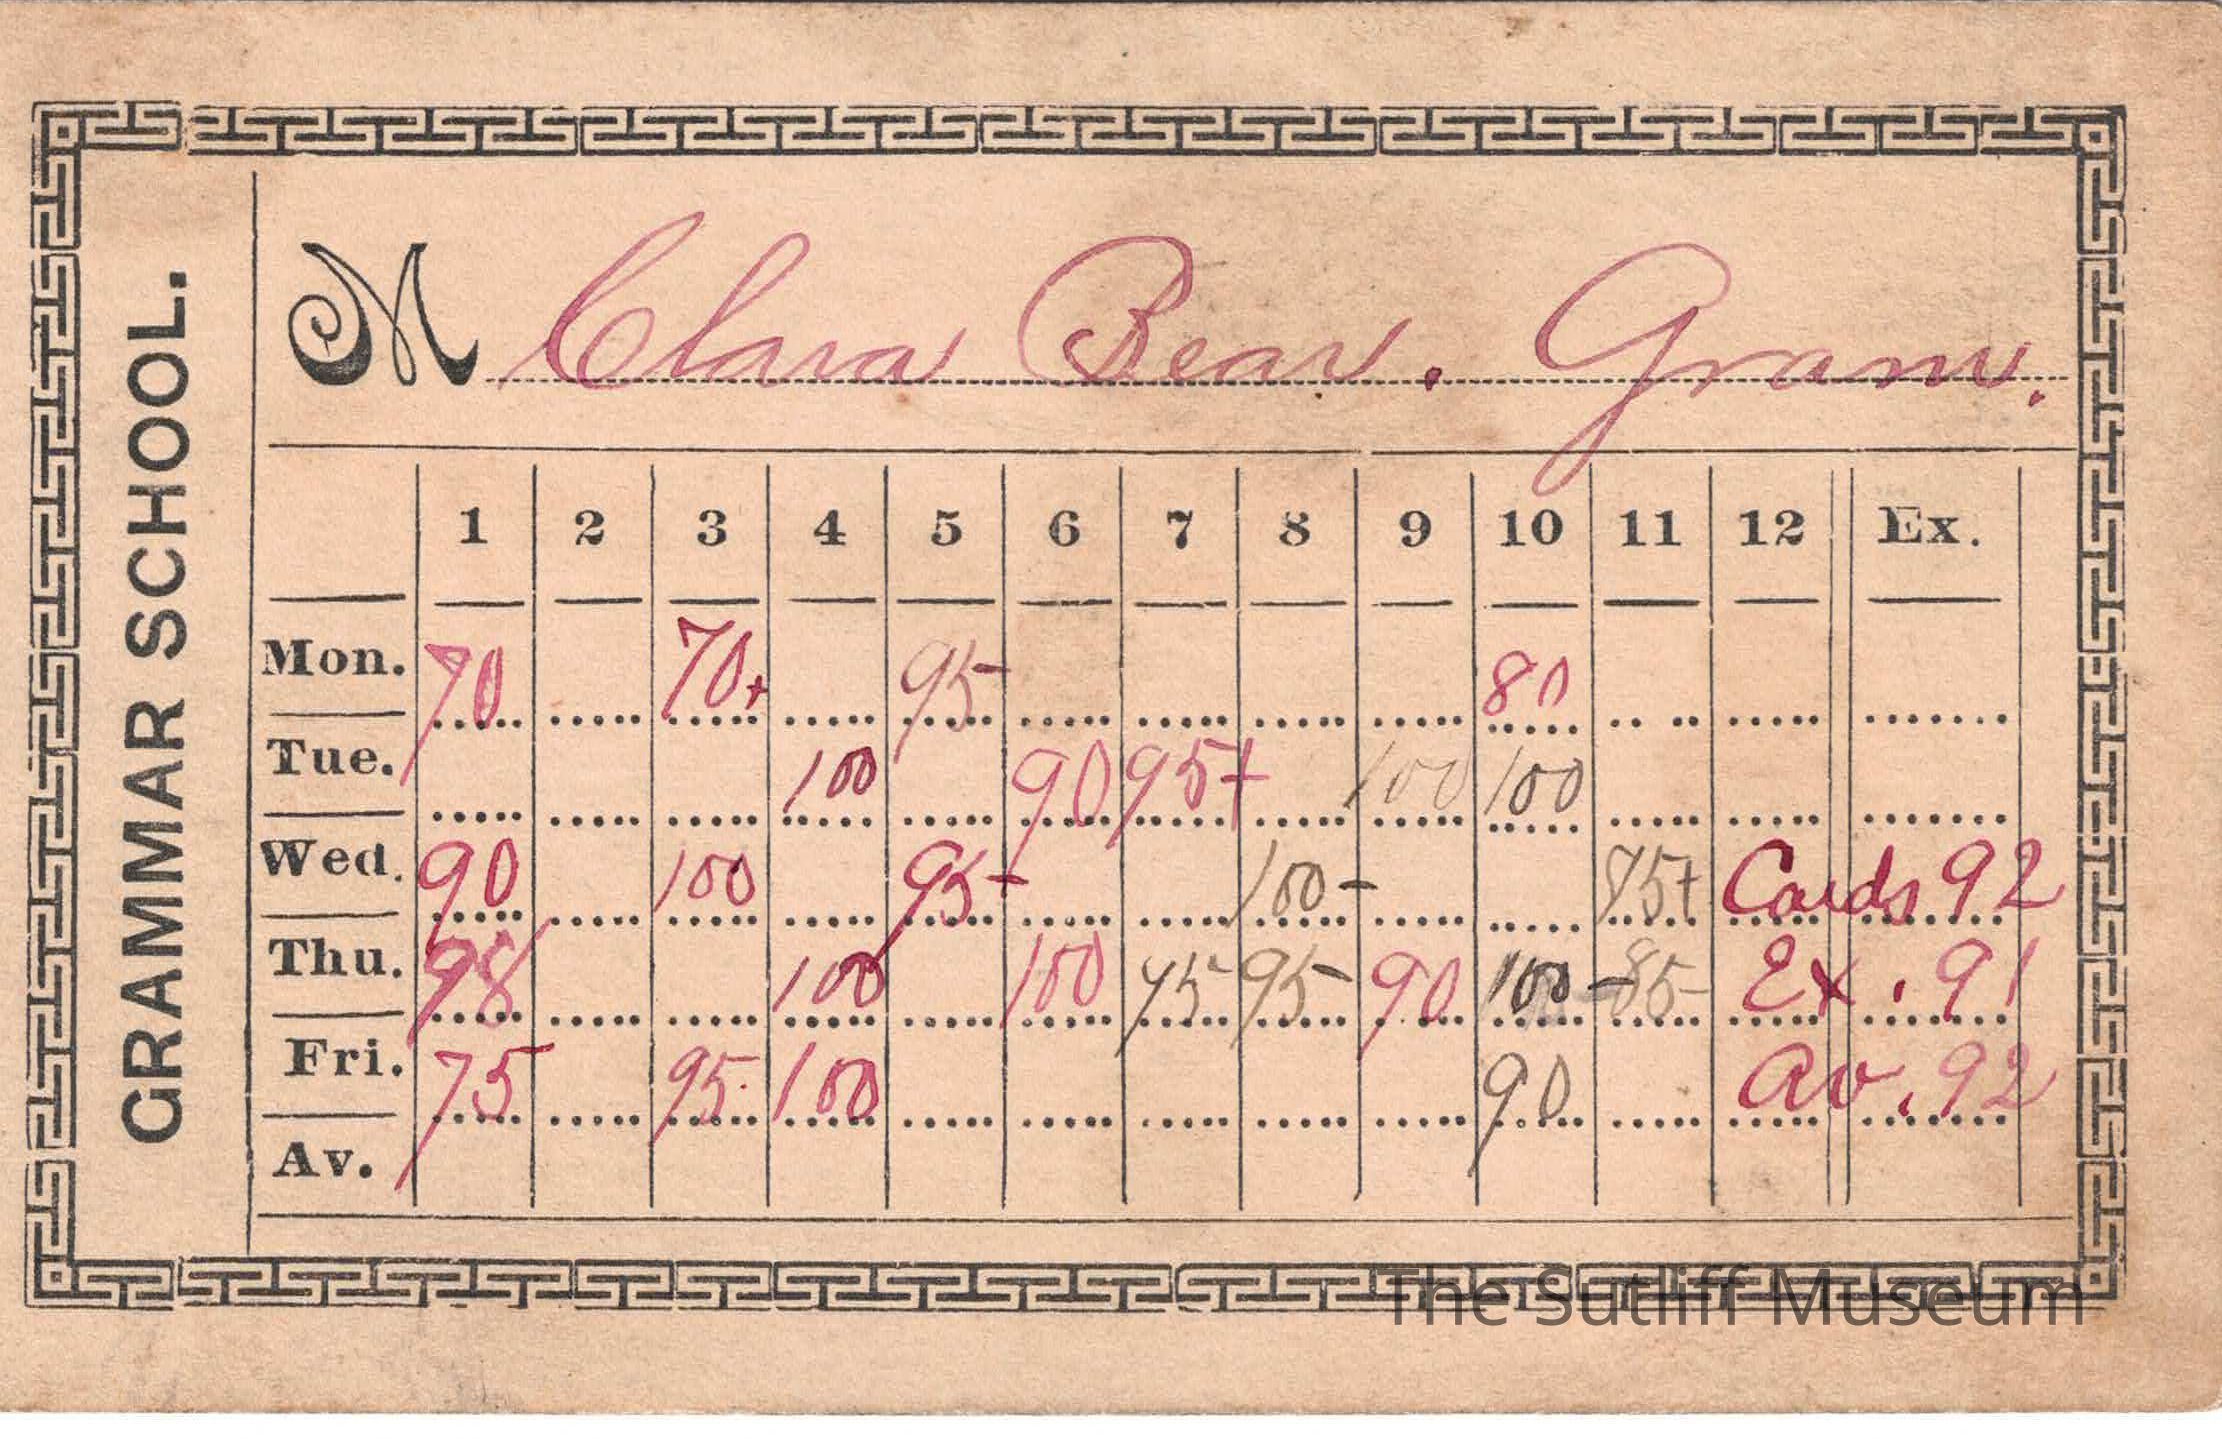 GRAMMAR SCHOOL.
M Clara Bear. Gram.
1 2 3 4 5 6 7 8 9 10 11 12 Ex.
Mon. 70 70+ 95- 80
Tue. 100 90 95+ 100 100
Wed. 90 100 95+ 100- 85+ Cards 92
Thu. 98 100 100 75- 95- 90 100- 85- Ex. 91
Fri. 75 95. 100 90 Av. 92
Av.
The Sutliff Museum